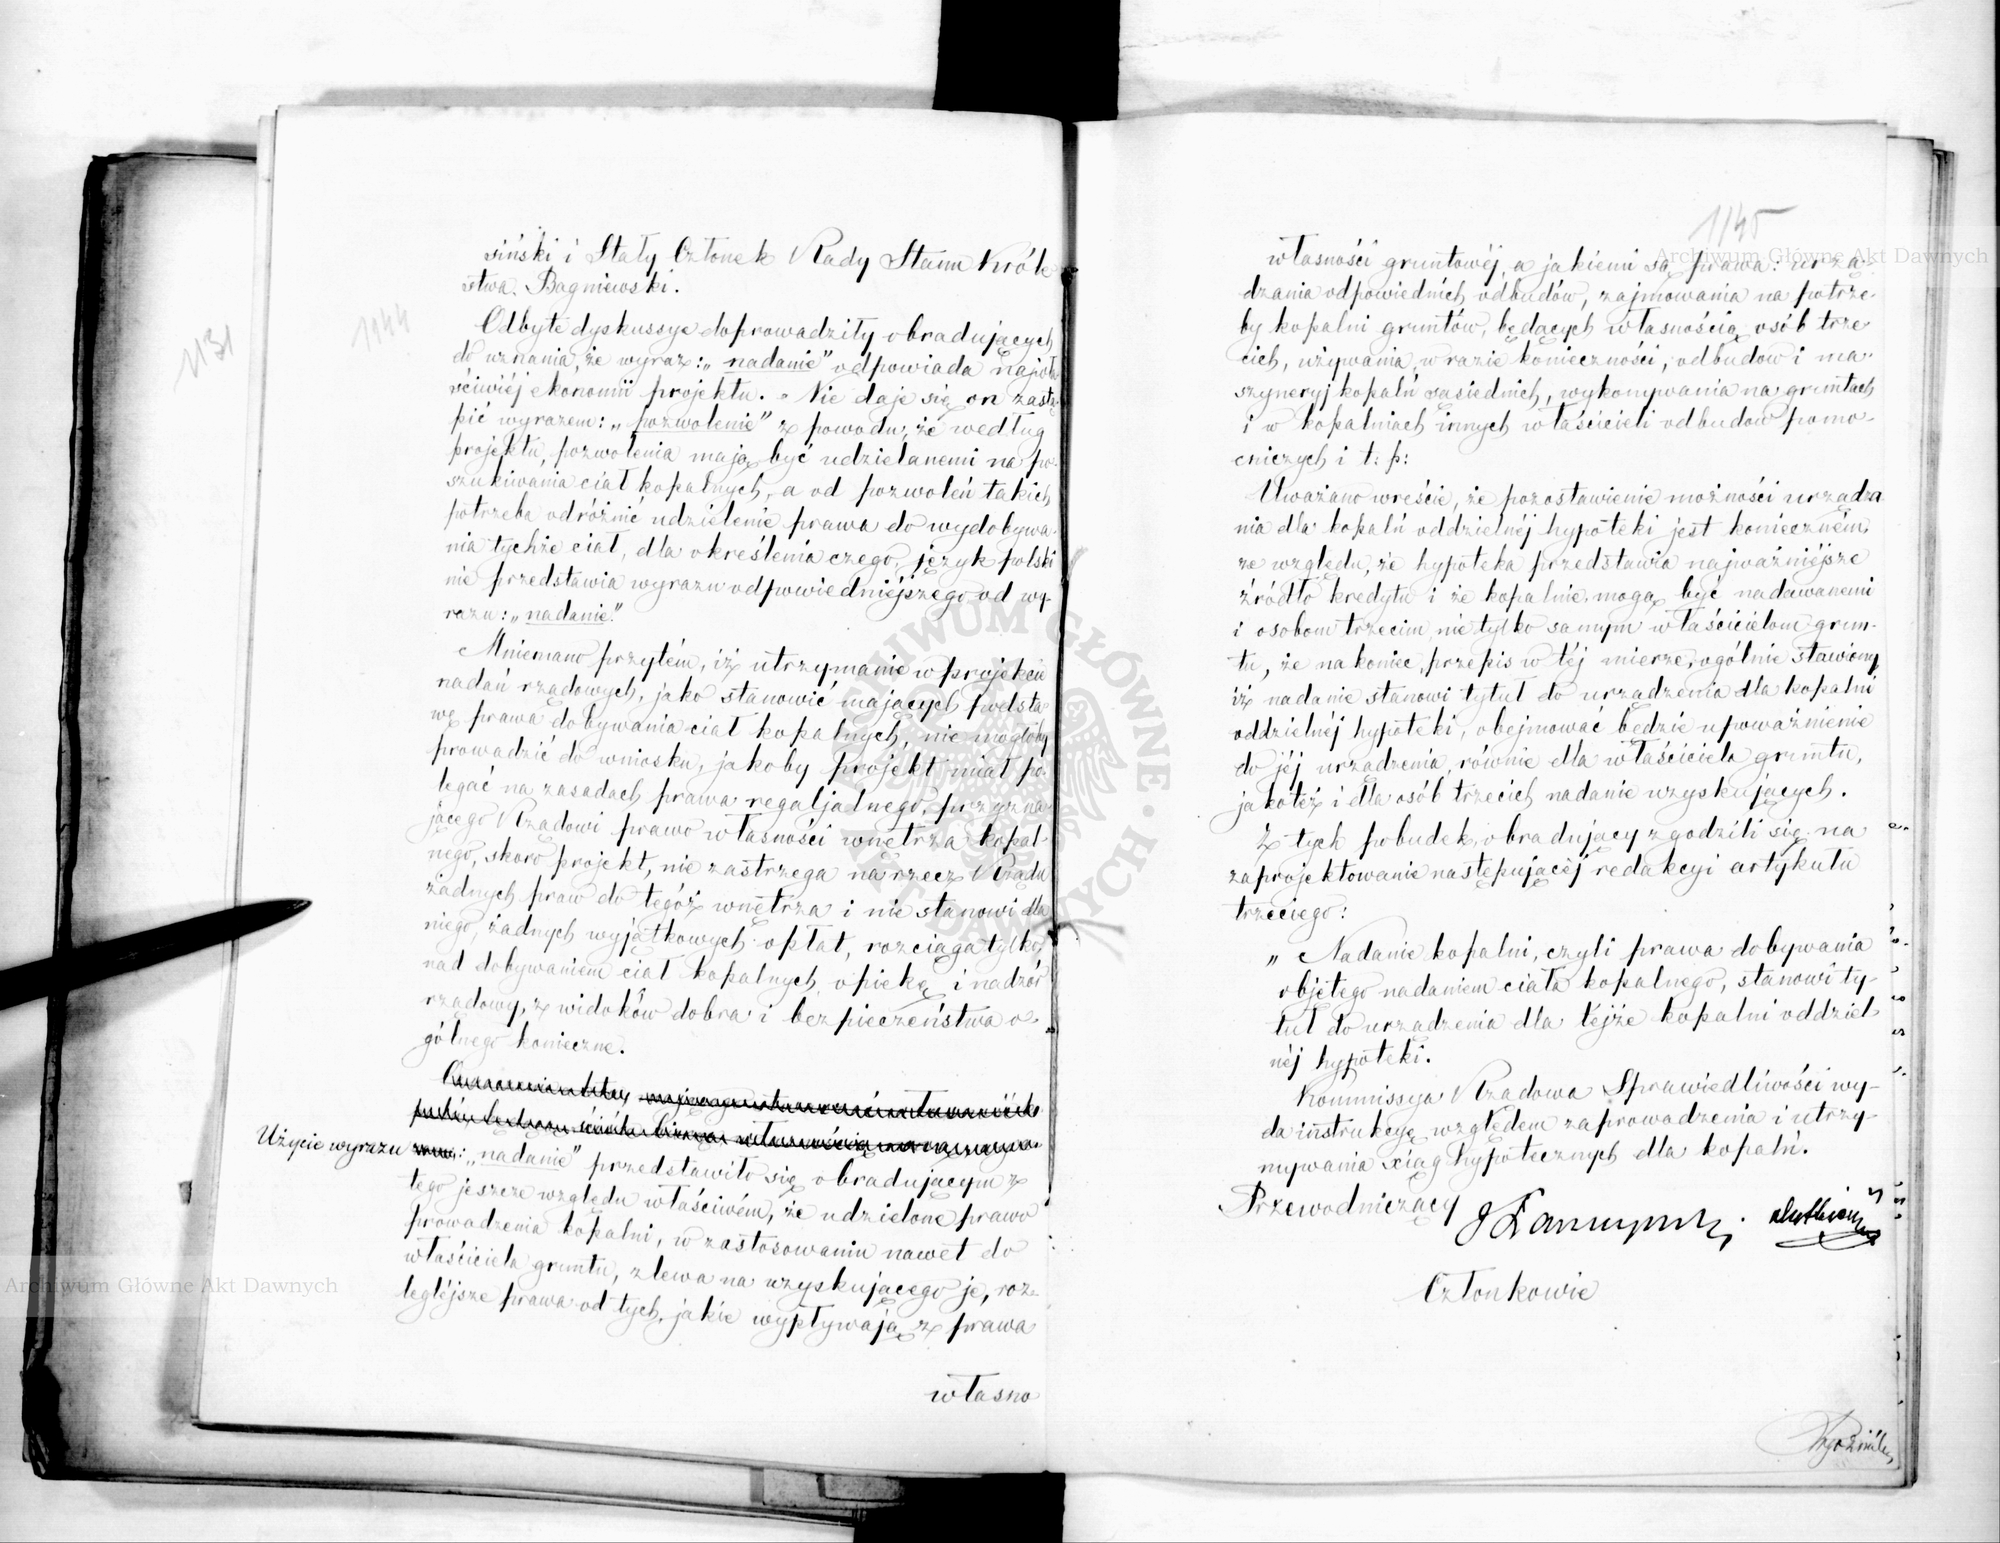 1131
1144
siński i Stały Członek Rady Stanu Króle
stwa Bagniewski.
Odbyte dyskussye doprowadziły obradujących
do uznania, że wyraz: „nadanie" odpowiada najwła
ściwiéj ekonomii projektu. Nie daje się on zastą
pić wyrazem: „pozwolenie" z powodu, że według
projektu, pozwolenia mają być udzielanemi na po-
szukiwania ciał kopalnych, a od pozwoleń takich
potrzeba odróżnić udzielenie prawa do wydobywa-
nia tychże ciał, dla określenia czego, język polski
nie przedstawia wyrazu odpowiedniéjszego od wy-
razu: „nadanie."
Mniemano przytém, iż utrzymanie w projekcie
nadań rządowych, jako stanowić mających podsta-
wę prawa dobywania ciał kopalnych, nie mogłoby
prowadzić do wniosku, jakoby projekt miał po-
legać na zasadach prawa regaljalnego, przyzna-
jącego Rządowi prawo własności wnętrza kopal-
nego, skoro projekt, nie zastrzega na rzecz Rządu
żadnych praw do tegóż wnętrza i nie stanowi dla
niego, żadnych wyjątkowych opłat, rozciąga tylko
nad dobywaniem ciał kopalnych opiekę i nadzór
rządowy, z widoków dobra i bezpieczeństwa o-
gólnego konieczne.
Użycie wyrazu: „nadanie" przedstawiło się obradującym z
tego jeszcze względu właściwém, że udzielone prawo
prowadzenia kopalni, w zastosowaniu nawet do
właściciela gruntu, zlewa na uzyskującego je, roz-
legléjsze prawa od tych, jakie wypływają z prawa
własno
1145
własności gruntowéj, a jakiemi są prawa: urzą-
dzania odpowiednich odbudów, zajmowania na potrze-
by kopalni gruntów, będących własnością osób trze
cich, używania, w razie konieczności, odbudow i ma-
szyneryj kopalń sąsiednich, wykonywania na gruntach
i w kopalniach innych właścicieli odbudow pomo-
cniczych i t: p:
Uważano wreście, że pozostawienie możności urządza
nia dla kopalń oddzielnéj hypoteki jest konieczném
ze względu, że hypoteka przedstawia najważniéjsze
źródło kredytu i że kopalnie mogą być nadawanemi
i osobom trzecim nie tylko samym właścicielom grun-
tu, że nakoniec przepis w téj mierze, ogólnie stawiony
iż nadanie stanowi tytuł do urządzenia dla kopalni
oddzielnéj hypoteki, obejmować będzie upoważnienie
do jéj urządzenia, równie dla właściciela gruntu,
jakotéż i dla osób trzecich nadanie uzyskujących.
Z tych pobudek, obradujący zgodzili się na
zaprojektowanie następującéj redakcyi artykułu
trzeciego:
„ Nadanie kopalni, czyli prawa dobywania
objętego nadaniem ciała kopalnego, stanowi ty-
tuł do urządzenia dla téjże kopalni oddziel
néj hypoteki.
Kommissya Rządowa Sprawiedliwości wy-
da instrukcyę względem zaprowadzenia i utrzy-
mywania xiąg hypotecznych dla kopalń.
Przewodniczący
Członkowie
Archiwum Główne Akt Dawnych
Archiwum Główne Akt Dawnych
ARCHIWUM GŁÓWNE AKT DAWNYCH